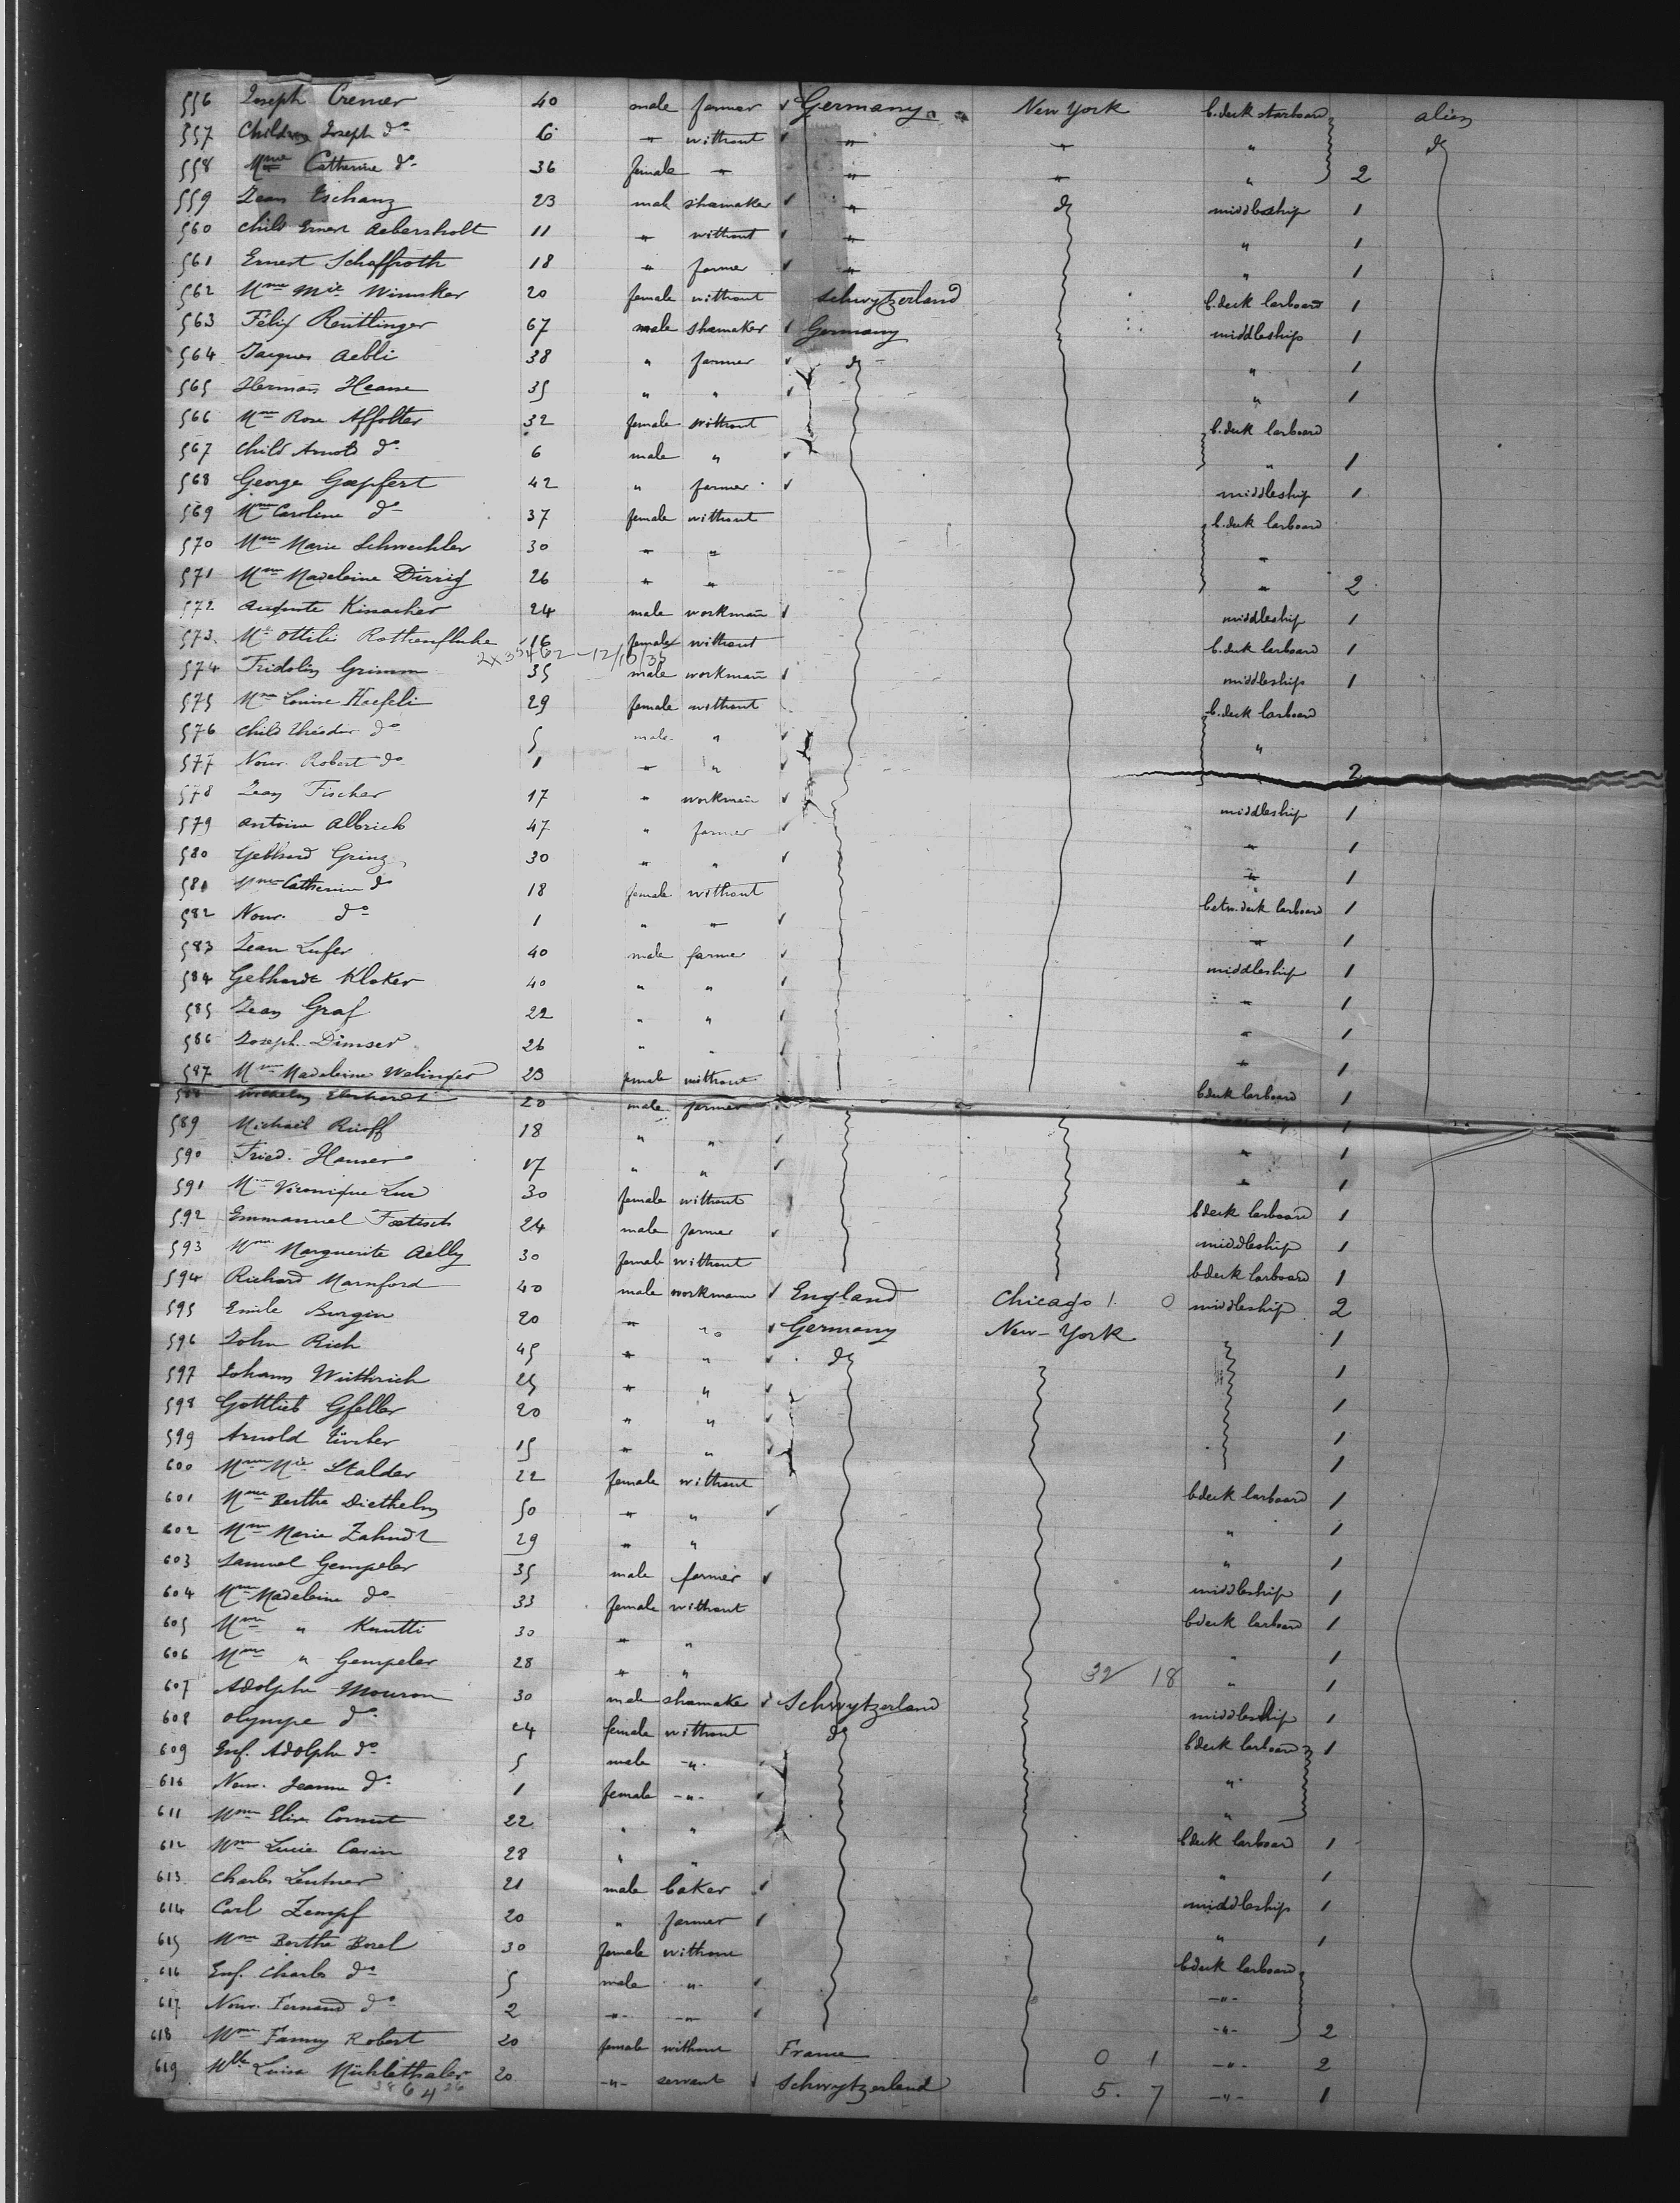 556 Joseph Cremer 40 male farmer Germany " New York b.deck starboard alien
557 Children Joseph do 6 " without " " " do
558 Mme Catherine do 36 female " " " " 2
559 Jean Tschanz 23 male shœmaker " do middleship 1
560 child Ernest Aebersholt 11 " without " " 1
561 Ernest Schaffroth 18 " farmer " " 1
562 Mme Mie 20 female without Schwytzerland b.deck larboard 1
563 Félix Reutlinger 67 male shœmaker Germany middleship 1
564 Jacques Aebli 38 " farmer do " 1
565 Hermañ Hearne 35 " " " 1
566 Mme Rosa Affolter 32 female without b.deck larboard
567 Child Arnold do 6 male " " 1
568 George Gœpfert 42 " farmer middleship 1
569 Mme Caroline do 37 female without b.deck larboard
570 Mme Marie Schwechler 30 " " "
571 Mme Madeleine Dirrig 26 " " " 2
572 Auguste Kinacher 24 male workmañ middleship 1
573 Me Ottili Rothenfluhe 16 female without b.deck larboard 1
2x 35462 - 12/10/35
574 Fridolin Grimm 35 male workmañ middleship 1
575 Mme Louise Haefeli 29 female without b.deck larboard
576 child Théodor do 5 male " "
577 Nour. Robert do 1 " " 2
578 Jean Fischer 17 " workmañ middleship 1
579 Antoine Albrich 47 " farmer " 1
580 Gebhard Grinz 30 " " " 1
581 Mme Catherine do 18 female without betw.deck larboard 1
582 Nour. do 1 " " " 1
583 Jean Lufer 40 male farmer middleship 1
584 Gebhardt Kloker 40 " " " 1
585 Jean Graf 22 " " " 1
586 Joseph Dimser 26 " " " 1
587 Mme Madeleine Welinger 23 female without bdeck larboard 1
588 Wilhelm Eberhardt 20 male farmer 1
589 Michael Ruoff 18 " " " 1
590 Fried. Hauser 17 " " " 1
591 Mme Véronique Luz 30 female without bdeck larboard 1
592 Emmanuel Fœtisch 24 male farmer middleship 1
593 Mme Marguerite Aelly 30 female without bdeck larboard 1
594 Richard Marnford 40 male workmann England Chicago 1. 0 middleship 2
595 Emile Burgin 20 " " Germany New-York 1
596 John Rich 45 " " do 1
597 Johann Wüthrich 25 " " 1
598 Gottlieb Gfeller 20 " " 1
599 Arnold Zürcher 15 " " 1
600 Mme Mie Stalder 22 female without bdeck larboard 1
601 Mme Berthe Diethelm 50 " " " 1
602 Mme Marie Zahndt 29 " " " 1
603 Samuel Gempeler 35 male farmer middleship 1
604 Mme Madeleine do 33 female without bdeck larboard 1
605 Mme " Knutti 30 " " " 1
606 Mme " Gempeler 28 " " 32 18 " 1
607 Adolphe Mouron 30 male shœmaker Schwytzerland middleship 1
608 Olympe do 24 female without do bdeck larboard 1
609 Enf. Adolphe do 5 male " "
610 Nour. Jeanne do 1 female " "
611 Mme Elise Cornut 22 " " bdeck larboard 1
612 Mme Lucie Carin 28 " " " 1
613 Charles Lentner 21 male baker middleship 1
614 Carl Zempf 20 " farmer " 1
615 Mme Berthe Borel 30 female without bdeck larboard
616 Enf. Charles do 5 male " "
617 Nour. Fernand do 2 " " " 2
618 Mme Fanny Robert 20 female without France 0 1 " 2
619 Mlle Luisa Mühlethaler 20 " servant Schwytzerland 5. 7 " 1